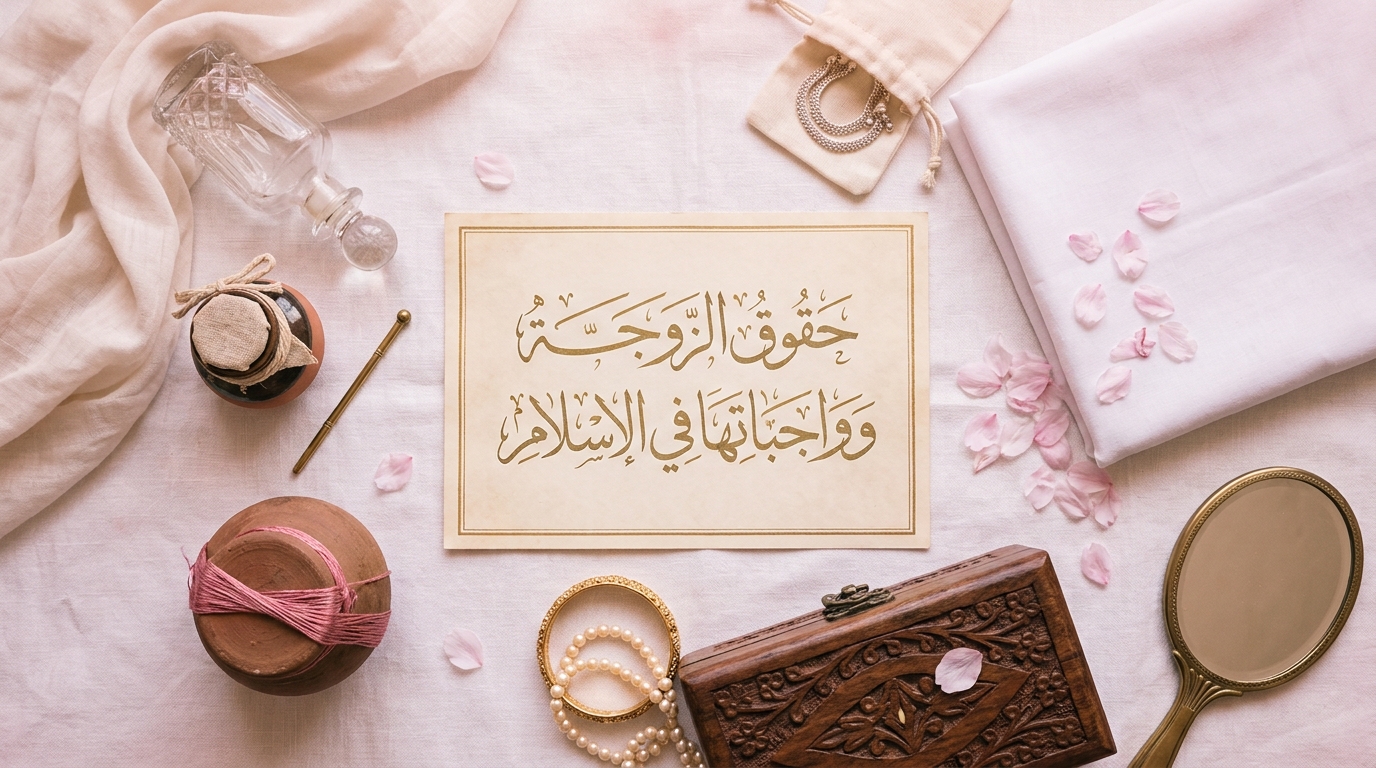 حَقُوقُ الزَّوَجَـــَّـةُ
وَوَاجَبَاتِهَا فِي الإِسْلَامِ